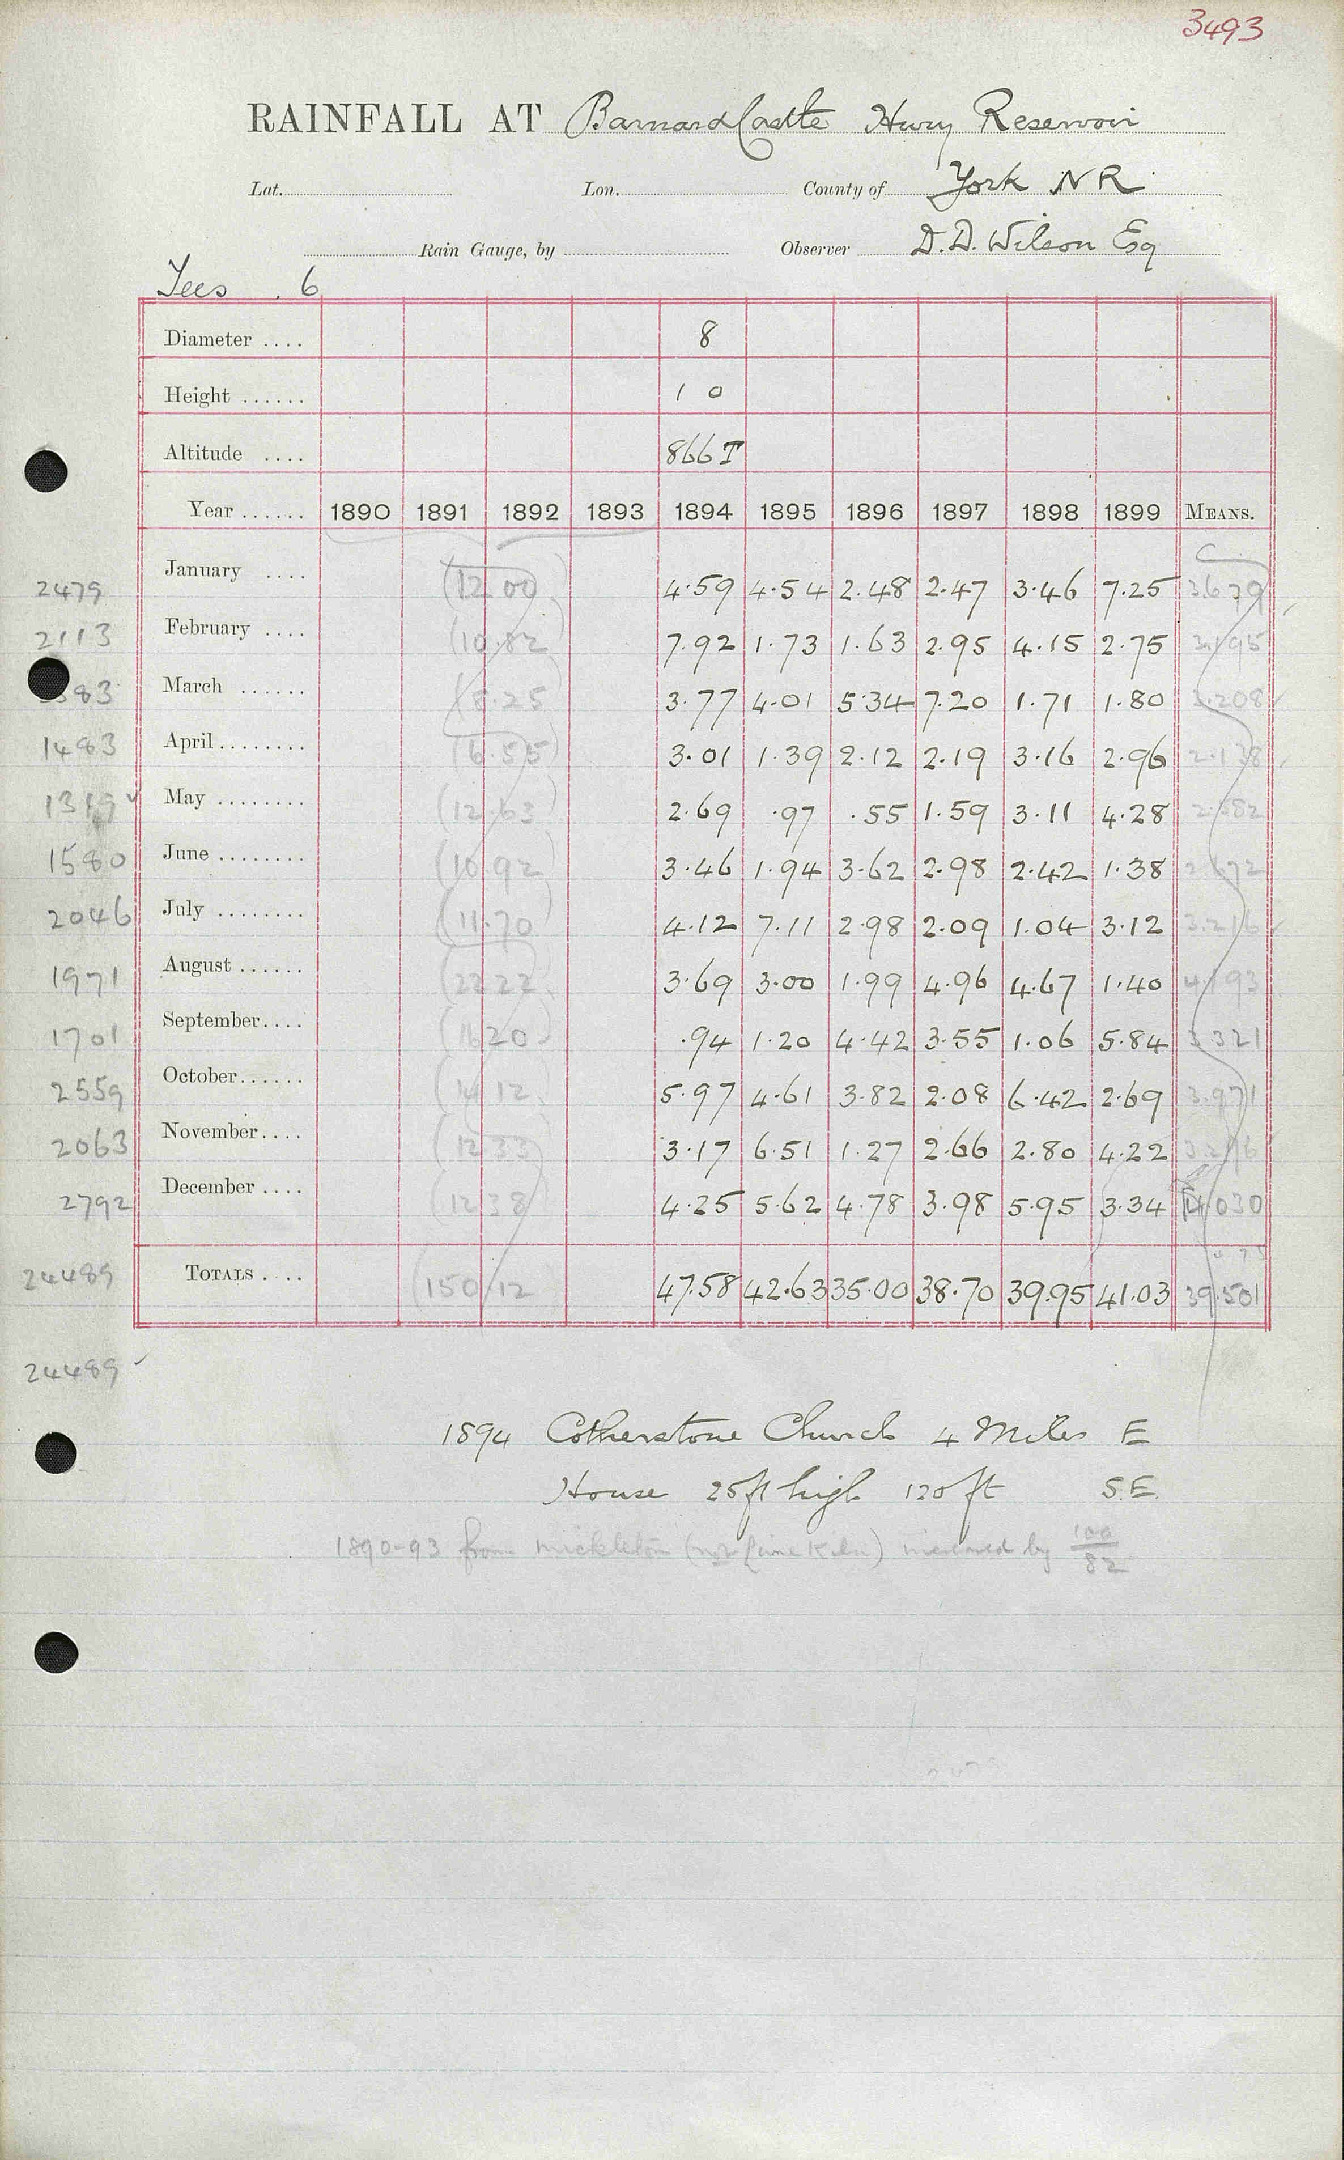 3493
RAINFALL AT Barnard Castle Hury Reservoir
Lat. Lon. County of York NR
Rain Gauge, by Observer D.D. Wilson Esq
Tees 6
Diameter .... 8
Height ...... 1 0
Altitude .... 866 T
Year ...... 1890 1891 1892 1893 1894 1895 1896 1897 1898 1899 MEANS.
2479 January .... (12.00) 4.59 4.54 2.48 2.47 3.46 7.25 3.679
2113 February .... (10.82) 7.92 1.73 1.63 2.95 4.15 2.75 3.195
83 March ...... (8.25) 3.77 4.01 5.34 7.20 1.71 1.80 3.208
1483 April ........ (6.55) 3.01 1.39 2.12 2.19 3.16 2.96 2.138
1319 May ........ (12.63) 2.69 .97 .55 1.59 3.11 4.28 2.582
1580 June ........ (10.92) 3.46 1.94 3.62 2.98 2.42 1.38 2.672
2046 July ........ (11.70) 4.12 7.11 2.98 2.09 1.04 3.12 3.216
1971 August ...... (22.22) 3.69 3.00 1.99 4.96 4.67 1.40 4.193
1701 September .... (16.20) .94 1.20 4.42 3.55 1.06 5.84 3.321
2559 October ...... (14.12) 5.97 4.61 3.82 2.08 6.42 2.69 3.971
2063 November .... (12.33) 3.17 6.51 1.27 2.66 2.80 4.22 3.296
2792 December .... (12.38) 4.25 5.62 4.78 3.98 5.95 3.34 4.030
24489 TOTALS .... (150.12) 47.58 42.63 35.00 38.70 39.95 41.03 39.501
24489
1894 Cotherstone Church 4 Miles E
House 25ft high 120ft S.E.
1890-93 from Mickleton (nr Lime Kiln) increased by 100/82